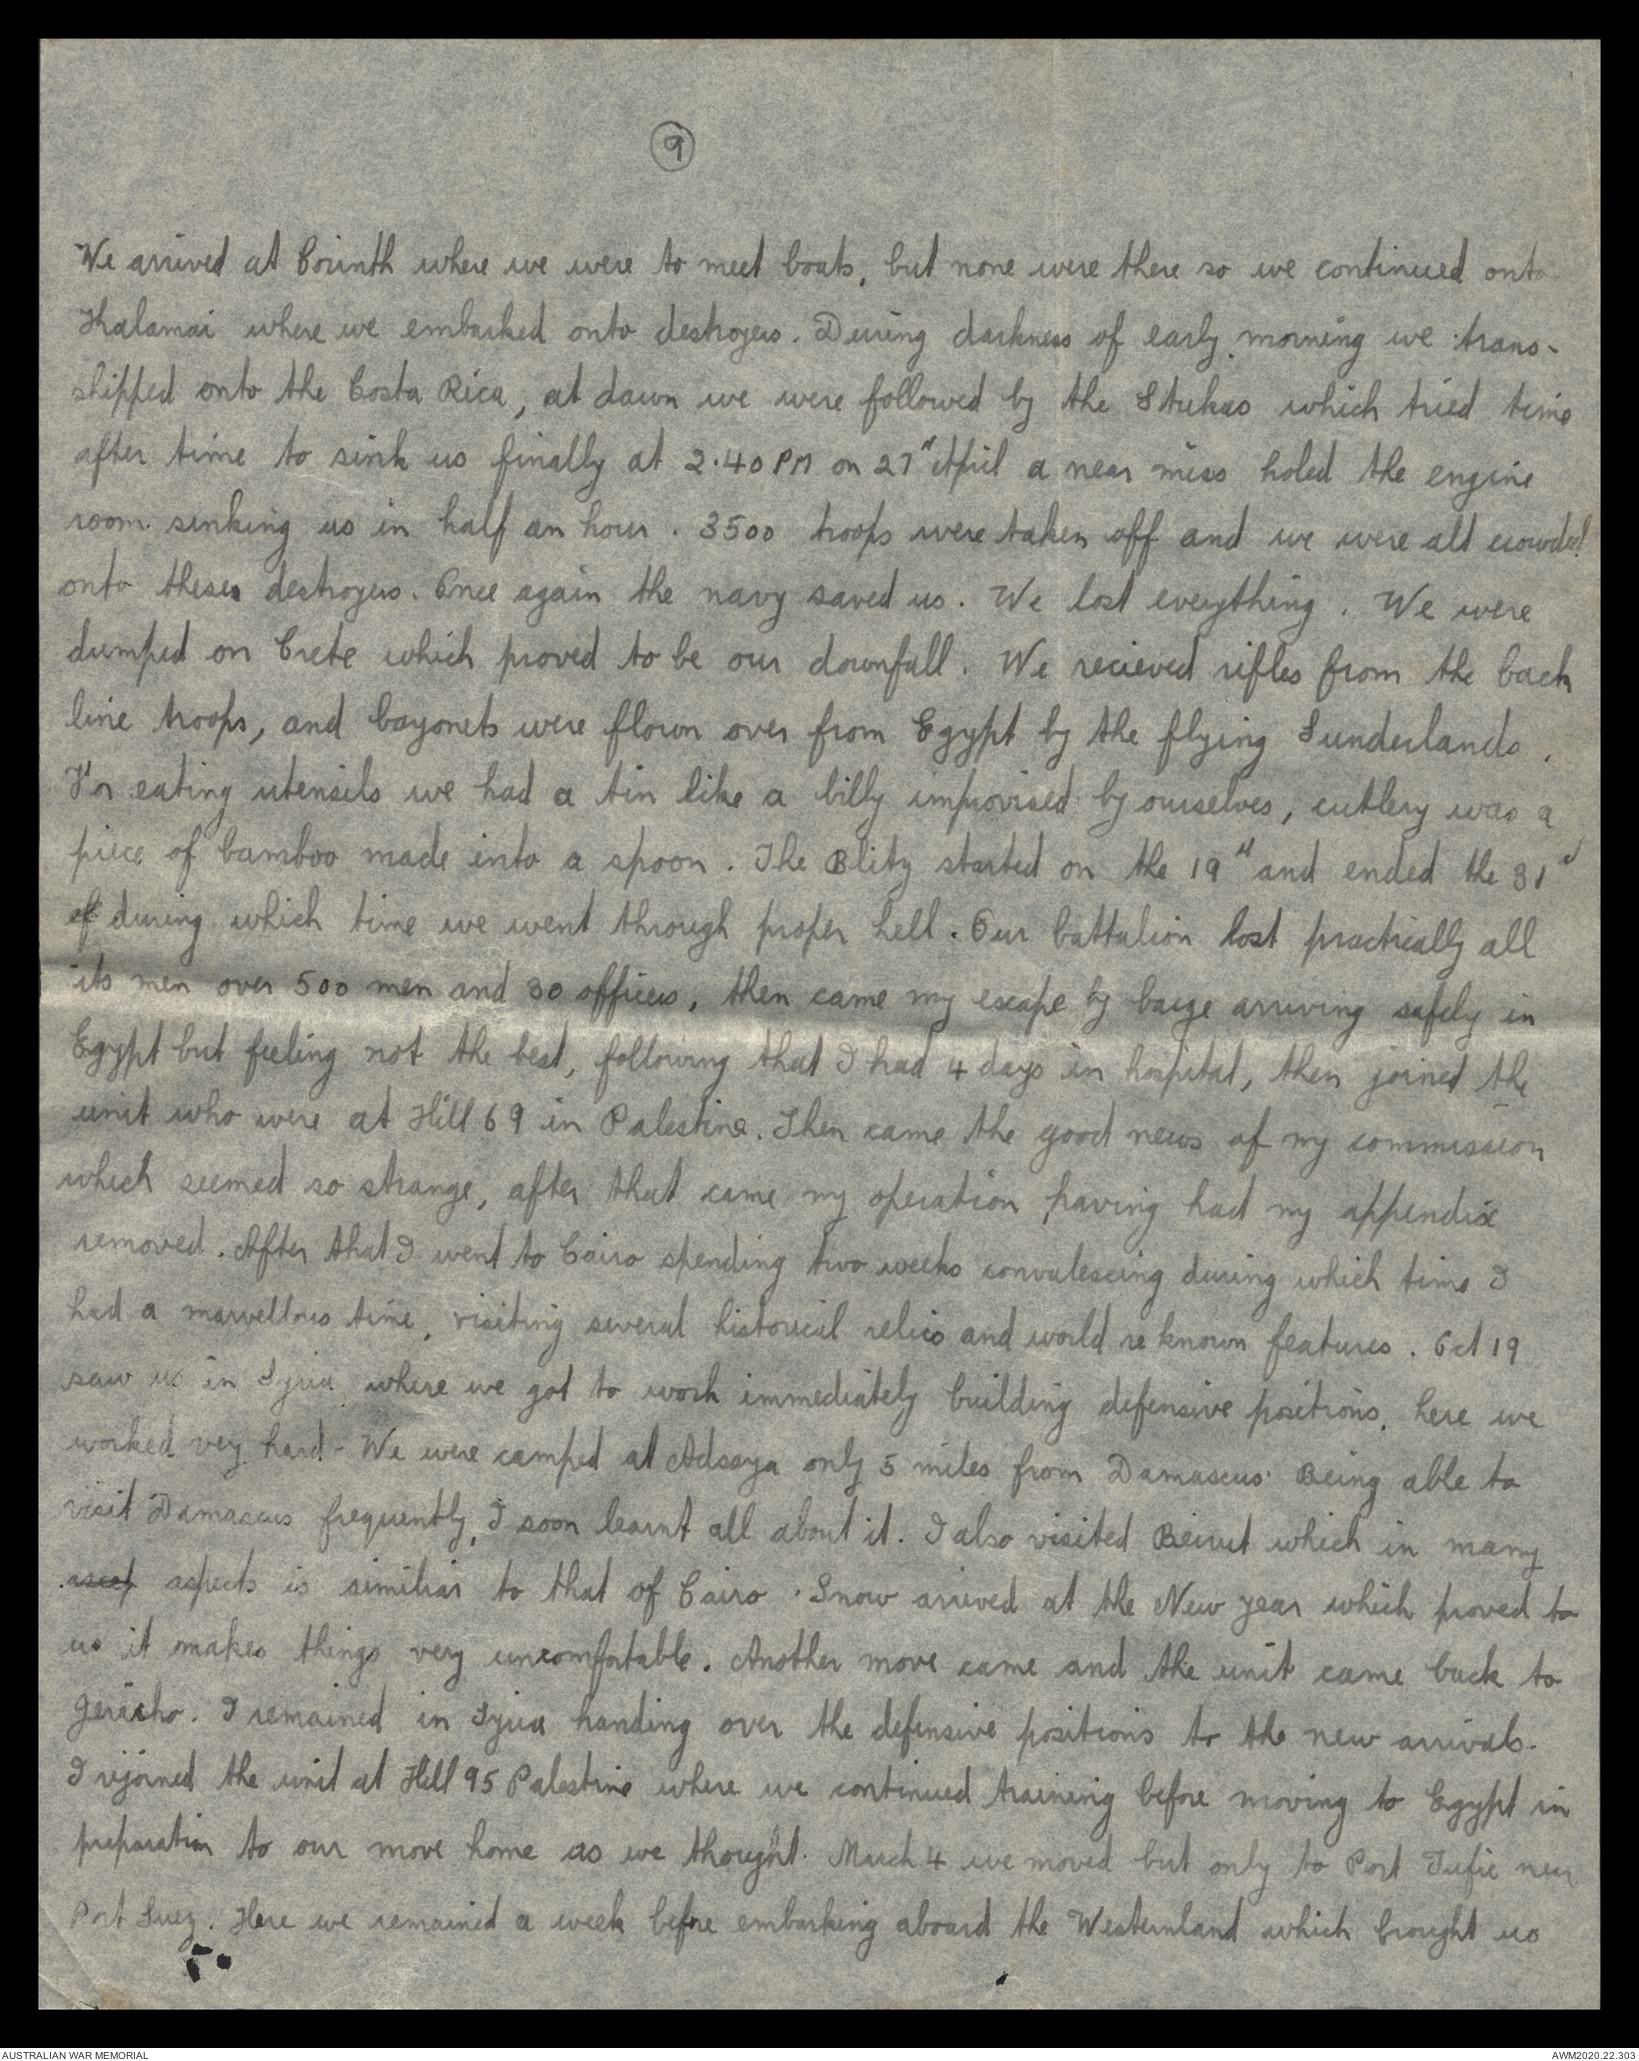 9
We arrived at Corinth where we were to meet boats, but none were there so we continued onto
Kalamai where we embarked onto destroyers. During darkness of early morning we trans-
shipped onto the Costa Rica, at dawn we were followed by the Stukas which tried time
after time to sink us finally at 2.40 PM on 27th April a near miss holed the engine
room sinking us in half an hour. 3500 troops were taken off and we were all crowded
onto these destroyers. Once again the navy saved us. We lost everything. We were
dumped on Crete which proved to be our downfall. We recieved rifles from the back
line troops, and bayonets were flown over from Egypt by the flying Sunderlands.
For eating utensils we had a tin like a billy improvised by ourselves, cutlery was a
piece of bamboo made into a spoon. The Blitz started on the 19th and ended the 31st
of during which time we went through proper hell. Our battalion lost practically all
its men over 500 men and 30 officers, then came my escape by barge arriving safely in
Egypt but feeling not the best, following that I had 4 days in hospital, then joined the
unit who were at Hill 69 in Palestine. Then came the good news of my commission
which seemed so strange, after that came my operation having had my appendix
removed. After that I went to Cairo spending two weeks convalescing during which time I
had a marvellous time, visiting several historical relics and world re known features. Oct 19
saw us in Syria where we got to work immediately building defensive positions, here we
worked very hard - We were camped at Adsaya only 5 miles from Damascus. Being able to
visit Damascus frequently, I soon learnt all about it. I also visited Beirut which in many
ascep aspects is similiar to that of Cairo. Snow arrived at the New year which proved to
us it makes things very uncomfortable. Another move came and the unit came back to
Jericho. I remained in Syria handing over the defensive positions to the new arrivals.
I rejoined the unit at Hill 95 Palestine where we continued training before moving to Egypt in
preparation to our move home as we thought. March 4 we moved but only to Port Tufic near
Port Suez. Here we remained a week before embarking aboard the Westernland which brought us
AUSTRALIAN WAR MEMORIAL
AWM2020.22.303